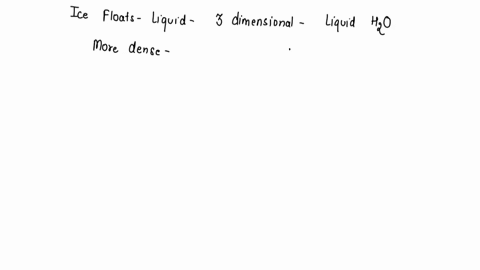 Ice Floats- Liquid- 3 dimensional- Liquid H2O
More dense-